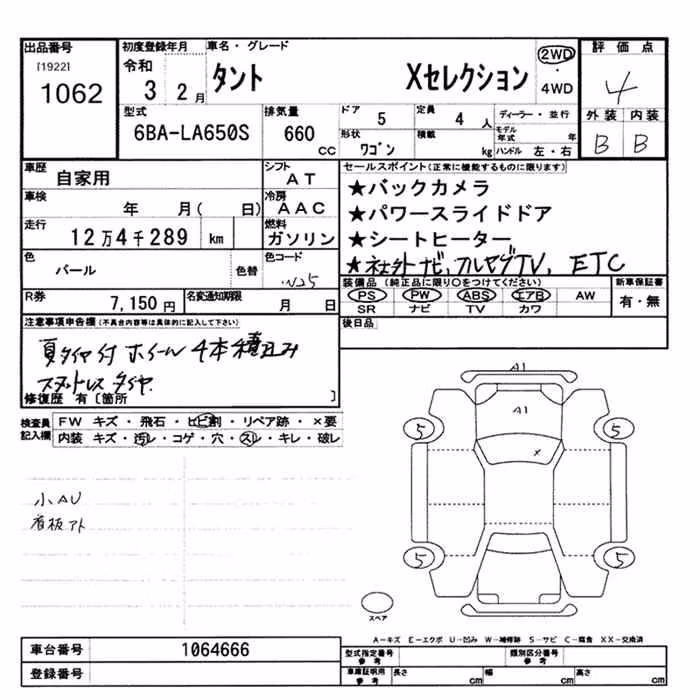 出品番号
[1922]
1062
初度登録年月
令和
3 2月
車名・グレード
タント Xセレクション
2WD
・
4WD
評価点
4
外装 内装
B B
型式
6BA-LA650S
排気量
660
CC
ドア
5
定員
4 人
ディーラー・並行
形状
ワゴン
積載
kg
モデル年式 年
ハンドル 左・右
車歴
自家用
シフト
AT
車検
年 月( 日)
冷房
AAC
走行
12万4千289 km
燃料
ガソリン
色
パール
色替
色コード
W25
R券
7,150円
名変通知期限
月 日
セールスポイント(正常に機能するものに限ります)
★バックカメラ
★パワースライドドア
★シートヒーター
★社外ナビ,フルセグTV, ETC
装備品(純正品に限り○をつけてください)
PS PW ABS エアB AW
SR ナビ TV カワ
新車保証書
有・無
後日品
注意事項申告欄(不具合内容等は具体的に記入して下さい)
夏タイヤ付ホイール4本積込み
スタットレスタイヤ
修復歴 有[箇所 ]
検査員記入欄
FW キズ・飛石・ヒビ割・リペア跡・×要
内装 キズ・汚レ・コゲ・穴・スレ・キレ・破レ
小AU
看板アト
A1
A1
×
5
5
5
5
スペア
A-キズ E-エクボ U-凹み W-補修跡 S-サビ C-腐食 XX-交換済
車台番号
1064666
登録番号
型式指定番号
参考
類別区分番号
参考
車庫証明用
参考
長さ cm
幅 cm
高さ cm